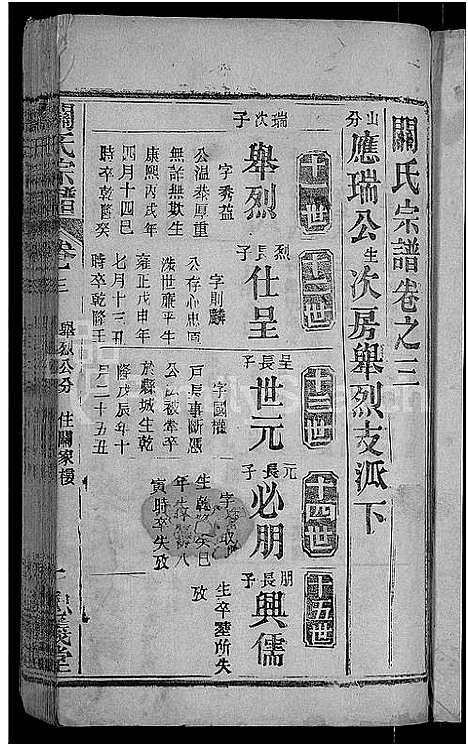 關氏宗譜卷之三
山分應瑞公生次房舉烈支派下
十一世 十二世 十三世 十四世 十五世
瑞次子 舉烈
字秀益
公温恭厚重
無詐無欺生
康熙丙戌年
四月十四巳
時卒乾隆癸
烈長子 仕呈
字則麟
公存心忠厚
雍正戊申年
七月十三丑
時卒乾隆壬
呈長子 世元
字國權
於縣城生乾
隆戊辰年十
月二十五丑
元長子 必朋
寅時卒失攷
朋長子 興儒
生卒塟所失
攷
關氏宗譜
卷之三 舉烈公分 住關家樓
忠義堂